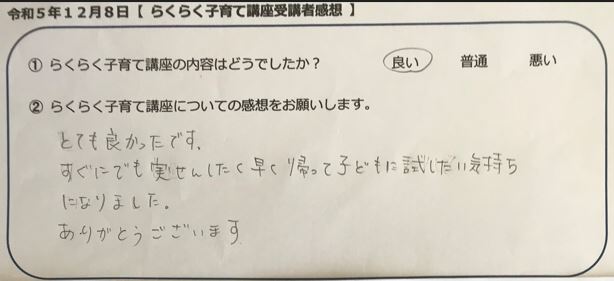 令和５年１２月８日【 らくらく子育て講座受講者感想 】
① らくらく子育て講座の内容はどうでしたか？　良い　普通　悪い
② らくらく子育て講座についての感想をお願いします。
とても良かったです。
すぐにでも実せんしたく早く帰って子どもに試しだい気持ち
になりました。
ありがとうございます